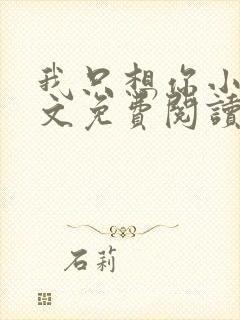 我只想你小
文免費閱讀
石莉